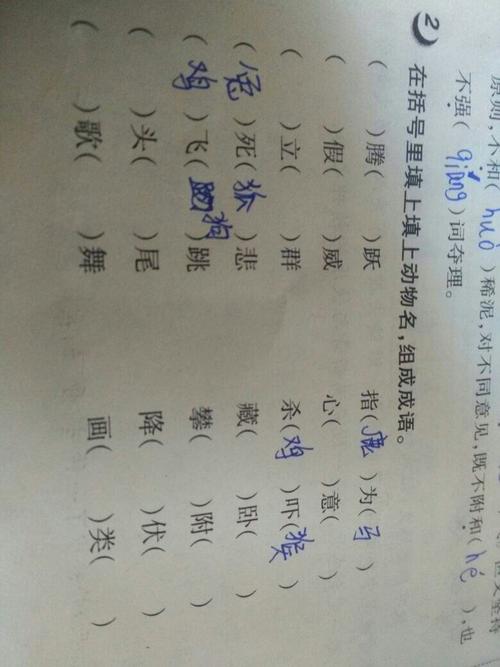 原则,不和( huò )稀泥,对不同意见,既不附和( hé ),也
不强( qiǎng )词夺理。
2 在括号里填上填上动物名,组成成语。
( )腾( )跃 指(鹿)为(马)
( )假( )威 心( )意( )
( )立( )群 杀(鸡)吓(猴)
(兔)死(狐)悲 藏( )卧( )
(鸡)飞(狗)跳 攀( )附( )
( )头( )尾 降( )伏( )
( )歌( )舞 画( )类( )